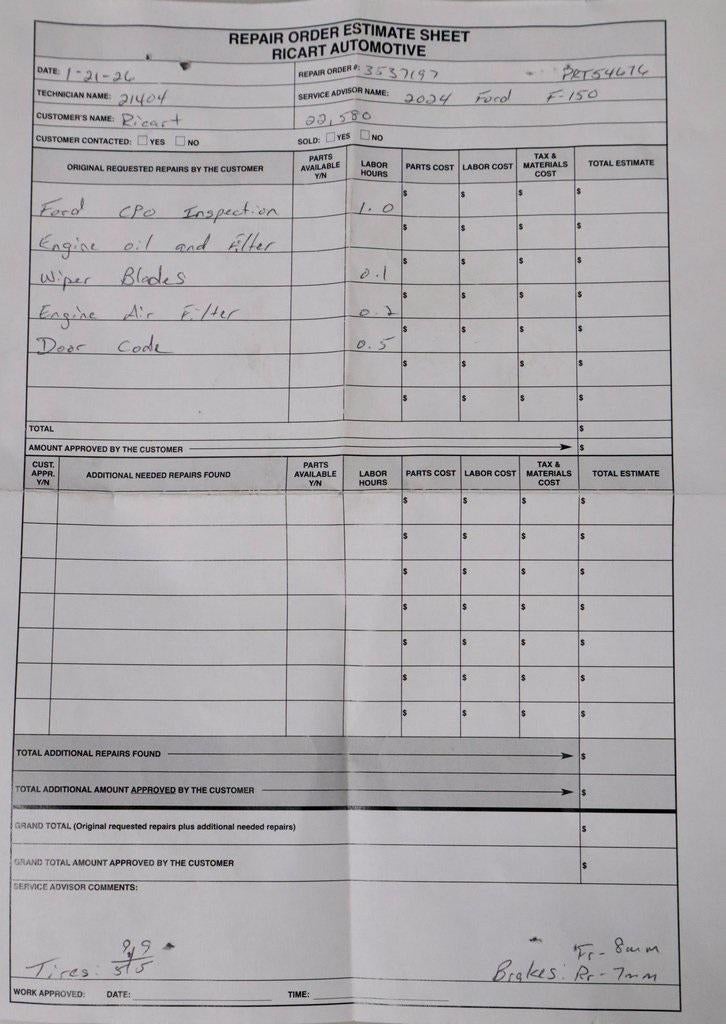 REPAIR ORDER ESTIMATE SHEET
RICART AUTOMOTIVE
DATE: 1-21-26 REPAIR ORDER #: 3537197 PRT54676
TECHNICIAN NAME: 21404 SERVICE ADVISOR NAME: 2024 Ford F-150
CUSTOMER'S NAME: Ricart 22,580
CUSTOMER CONTACTED: YES NO SOLD: YES NO
ORIGINAL REQUESTED REPAIRS BY THE CUSTOMER PARTS AVAILABLE Y/N LABOR HOURS PARTS COST LABOR COST TAX & MATERIALS COST TOTAL ESTIMATE
Ford CPO Inspection 1.0 $ $ $ $
Engine oil and Filter $ $ $ $
Wiper Blades 0.1 $ $ $ $
Engine Air Filter 0.2 $ $ $ $
Door Code 0.5 $ $ $ $
$ $ $ $
$ $ $ $
TOTAL $
AMOUNT APPROVED BY THE CUSTOMER $
CUST. APPR. Y/N ADDITIONAL NEEDED REPAIRS FOUND PARTS AVAILABLE Y/N LABOR HOURS PARTS COST LABOR COST TAX & MATERIALS COST TOTAL ESTIMATE
$ $ $ $
$ $ $ $
$ $ $ $
$ $ $ $
$ $ $ $
$ $ $ $
$ $ $ $
TOTAL ADDITIONAL REPAIRS FOUND $
TOTAL ADDITIONAL AMOUNT APPROVED BY THE CUSTOMER $
GRAND TOTAL (Original requested repairs plus additional needed repairs) $
GRAND TOTAL AMOUNT APPROVED BY THE CUSTOMER $
SERVICE ADVISOR COMMENTS:
9 9 Fr- 8mm
Tires: 5 5 Brakes: Rr- 7mm
WORK APPROVED: DATE: TIME: